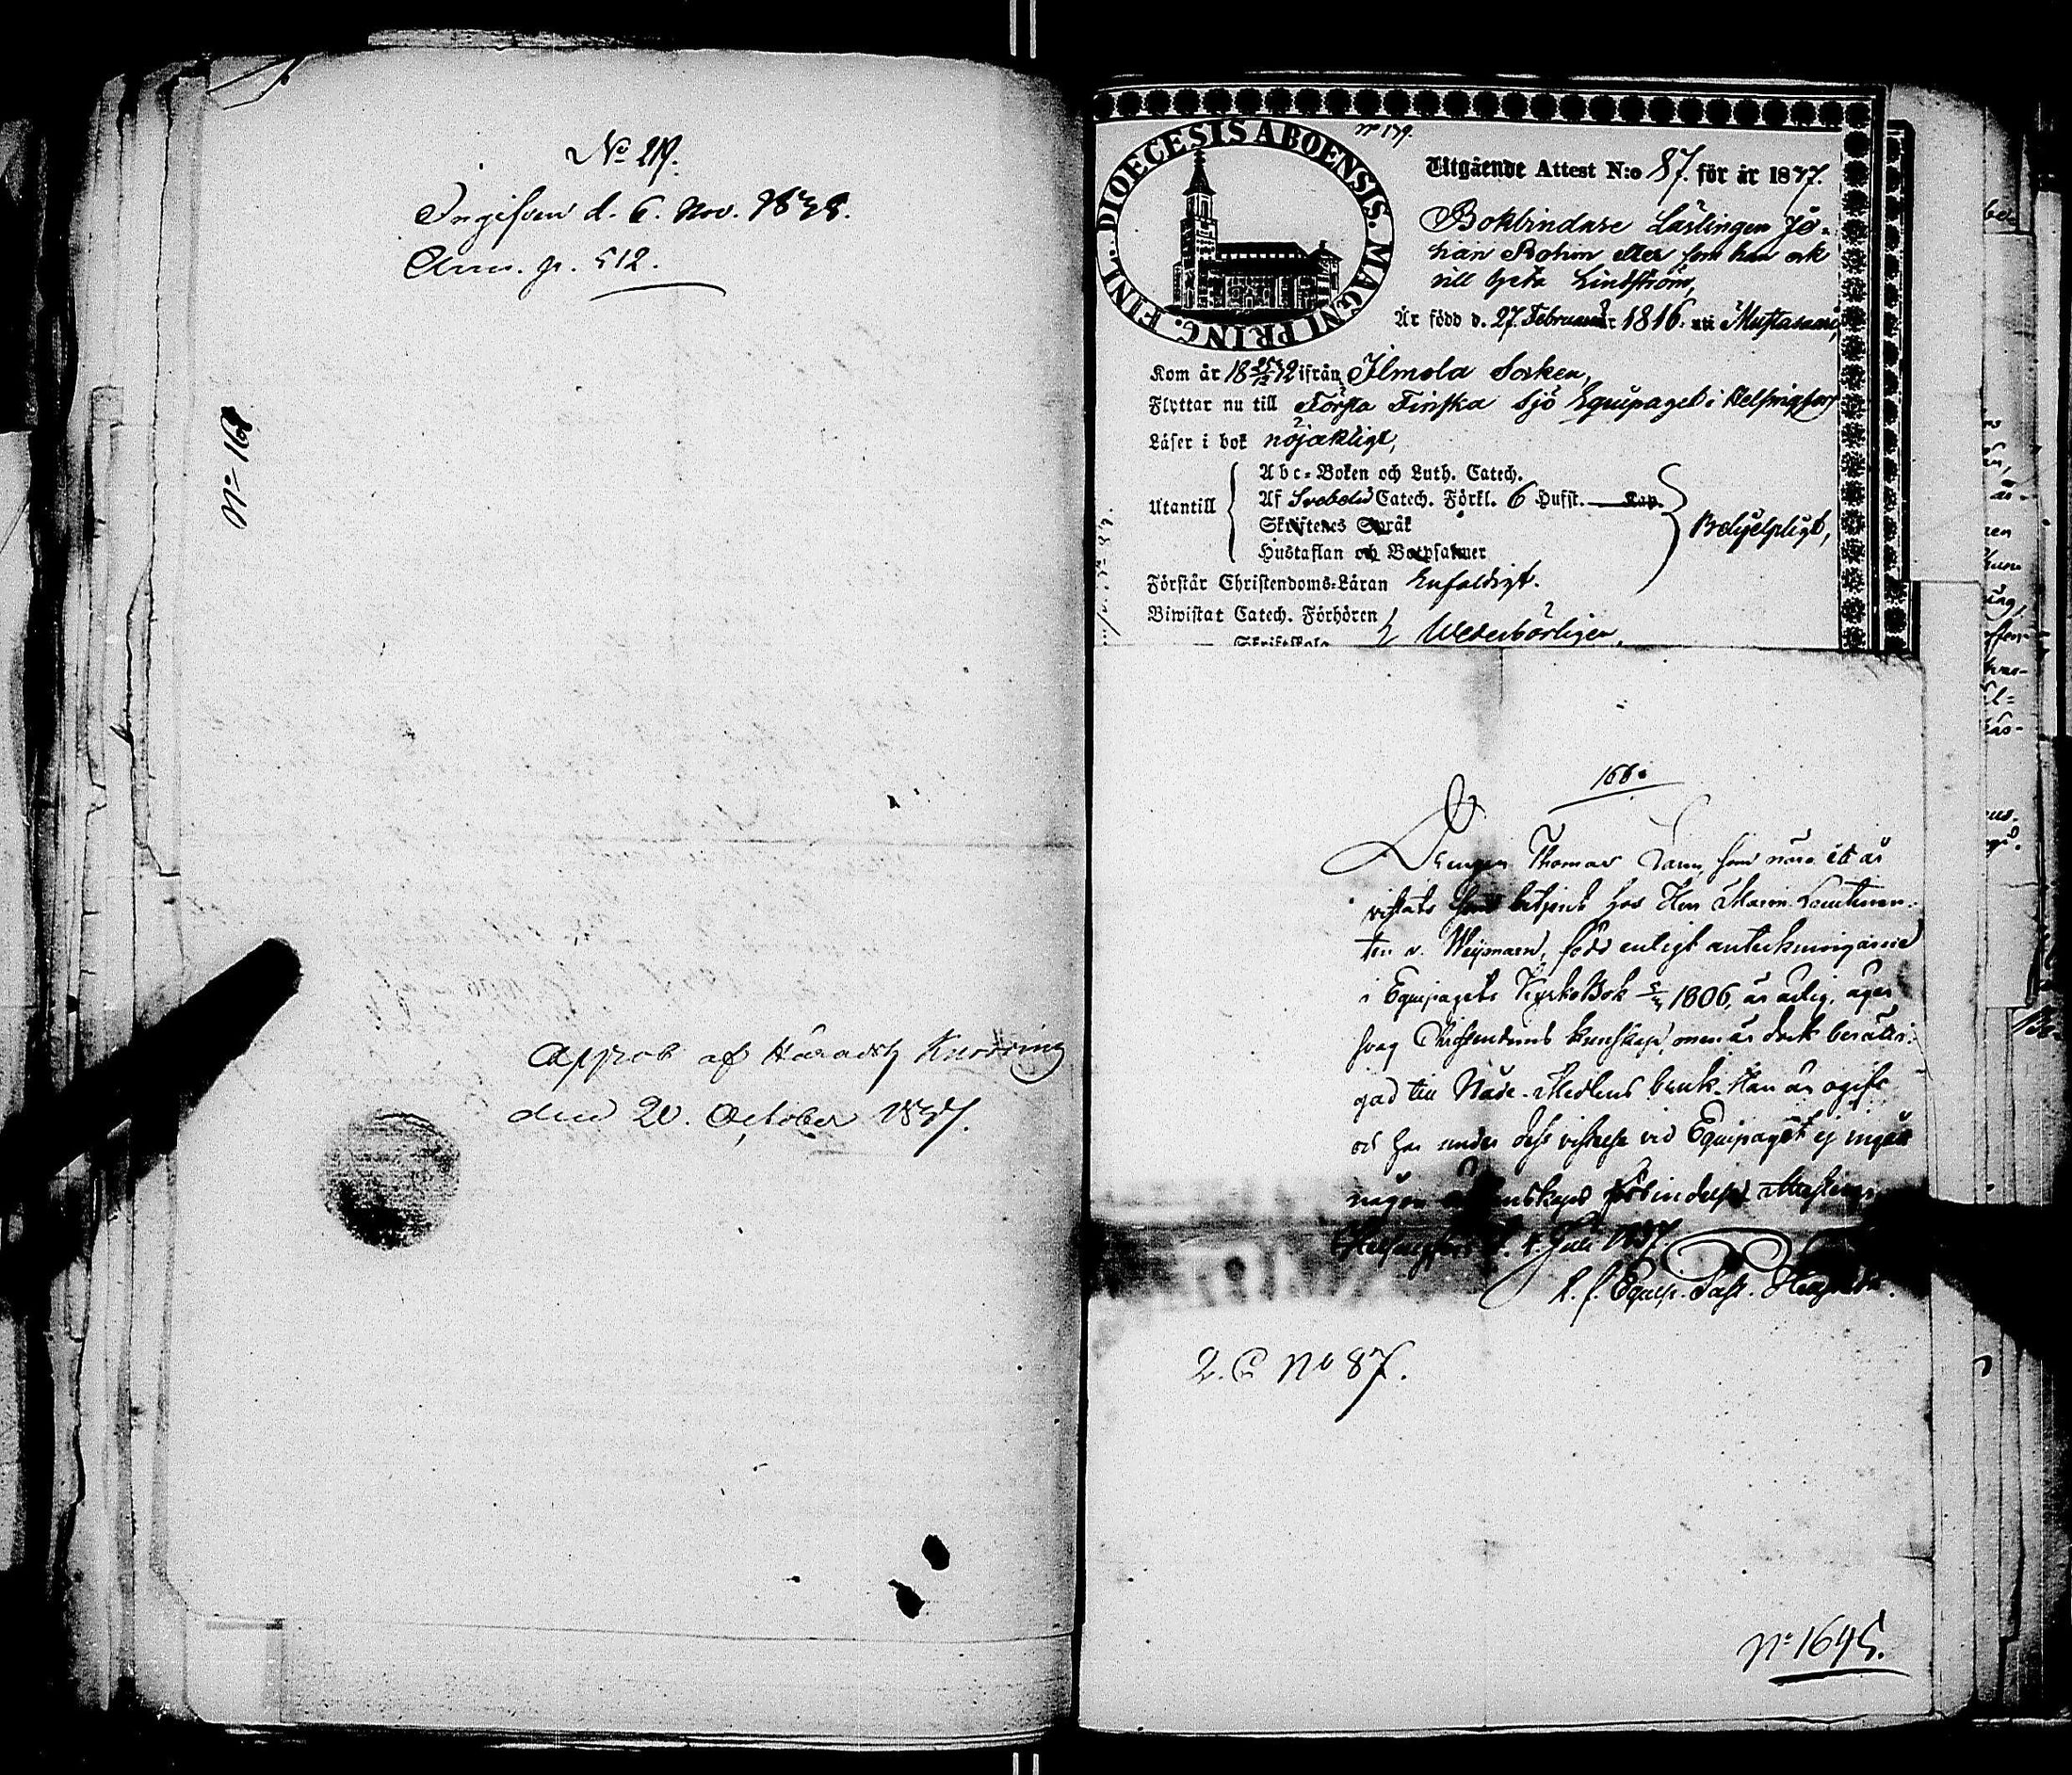 No 219.
Ingifven d. 6. Nov. 1838.
Ann. p. 512.
No 168
Approb af Häradsh Knorring
den 20. October 1837.
DIOECESIS ABOENSIS. MAGNI PRINC. FINL.
No 179.
Utgående Attest N:o 87. för år 1837.
Bokbindare Lärlingen Jo-
han Bohm eller som han ock
vill heta Lindström,
Är född d. 27. Februarii 1816. uti Mustasaari,
Kom år 18 32 ifrån Ilmola Socken,
Flyttar nu till Första Finska Sjö Equipaget i Helsingfors
Läser i bok nöjaktligt,
Abc-Boken och Luth. Catech.
Utantill Af Svebelii Catech. Förkl. 6 Hufst. Kap.
Skriftenes Språk
Hustaflan och Botpsalmer
Behjelpligt,
Förstår Christendoms-Läran Enfaldigt.
Biwistat Catech. Förhören
Skriftskola
Wederbörligen,
166.
Drengen Thomas som nära ett år
vistats som betjent hos Herr Marin Lieutenan-
ten v. Weymarn, född enligt anteckningarne
i Equipagets KyrkoBok 1806, är ärlig, äger
svag Christendoms kunskap, men är dock berätti-
gad till Nåde-Medlens bruk. Han är ogift
och har under dess vistelse vid Equipaget ej ingått
någon förbindelse
Helsingfors d. 4. Juli 1837.
Equip. Past.
2. C No 87.
No 1695.